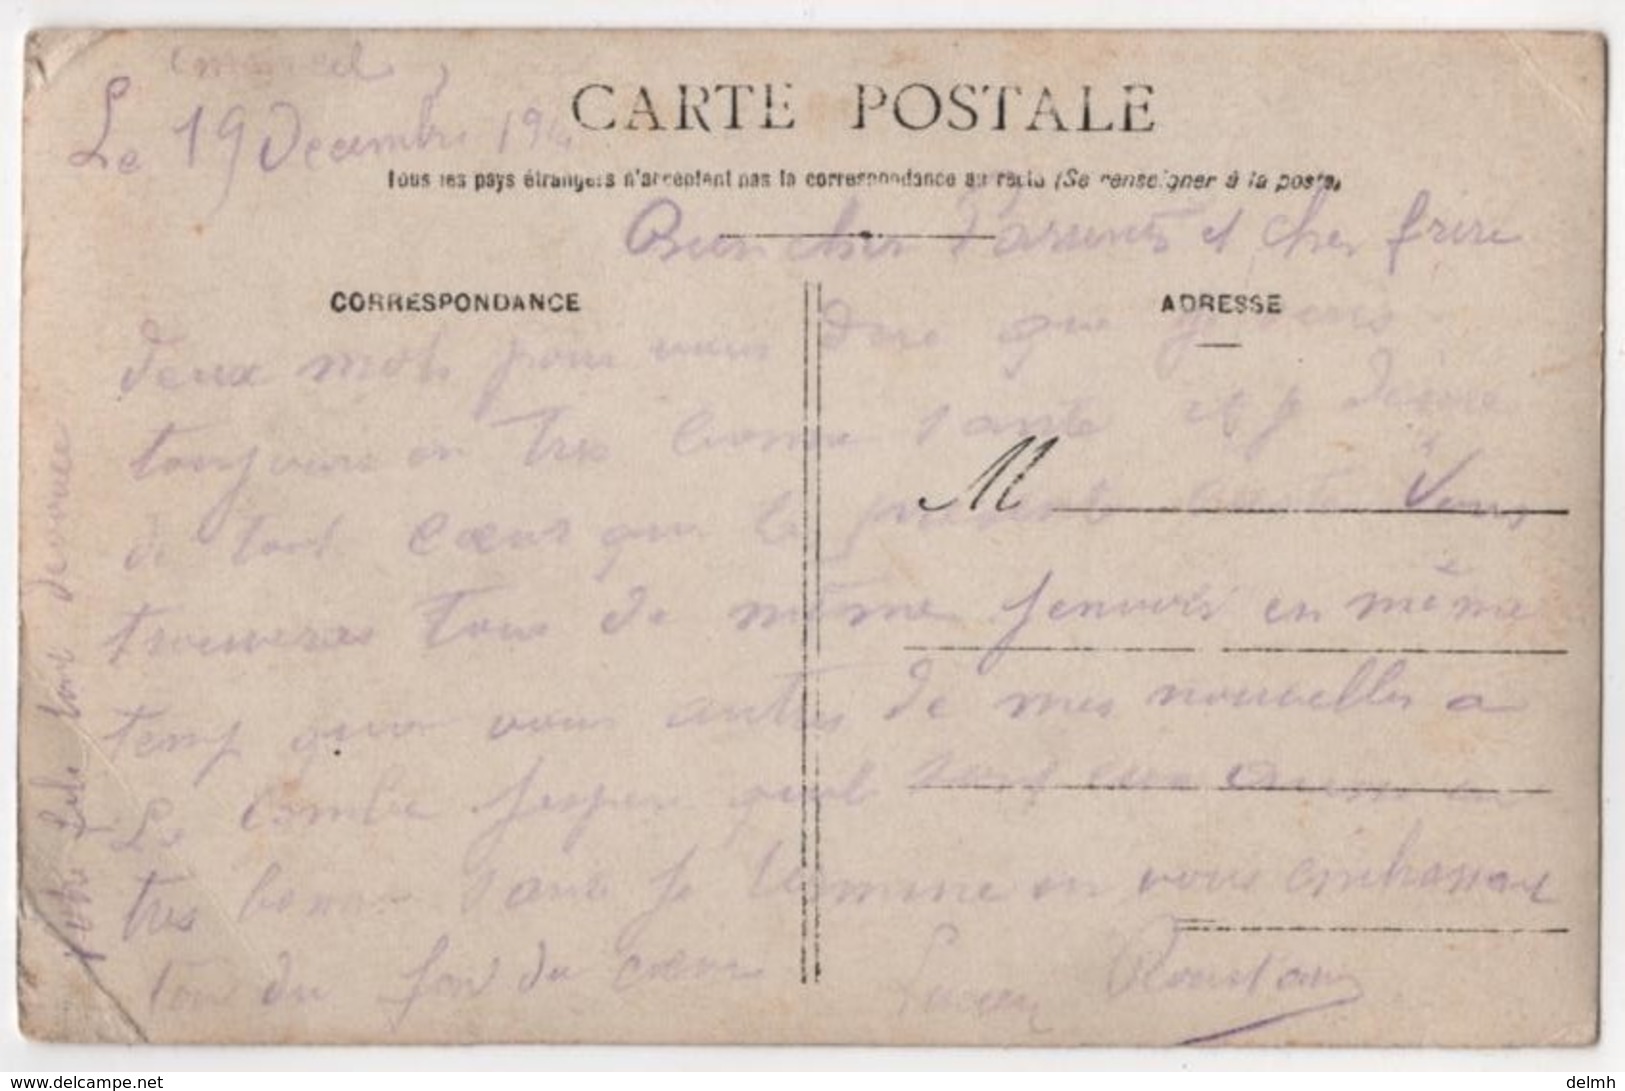 Le 19 Decembre 191
CARTE POSTALE
Tous les pays étrangers n'acceptent pas la correspondance au recto (Se renseigner à la poste)
Bien cher Parents et cher frere
CORRESPONDANCE
ADRESSE
deux mots pour vous dire que je suis
toujours en tres bonne sante et je desire
de tout cœur que la presente carte vous
M
trouveras tous de même J'envois en même
temp qua vous autres de mes nouvelles a
La Combe J'espere quil sont eux aussi en
tres bonne sante Je termine en vous embrassant
tous du fon du cœur
Lucien Roustan
votre fils tout devouee
www.delcampe.net
delmh